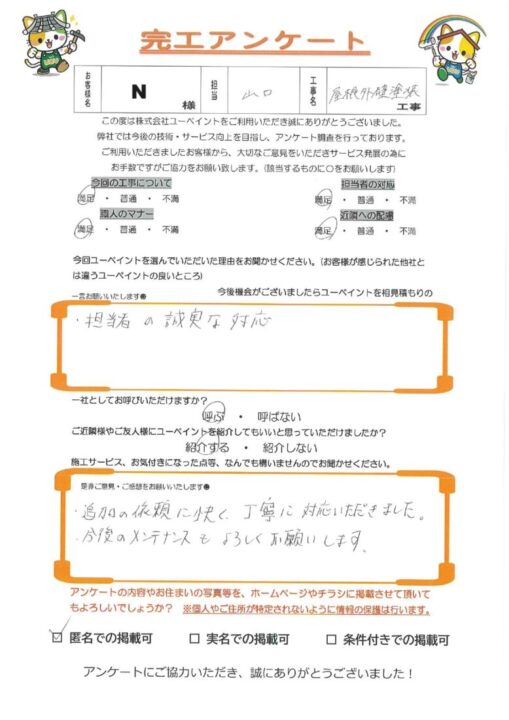 完工アンケート
お客様名
N
様
担当
山口
工事名
屋根外壁塗装
工事
この度は株式会社ユーペイントをご利用いただき誠にありがとうございました。
弊社では今後の技術・サービス向上を目指し、アンケート調査を行っております。
ご利用いただきましたお客様から、大切なご意見をいただきサービス発展の為に
お手数ですがご協力をお願い致します。(該当するものに○をお願いします)
今回の工事について
担当者の対応
満足 ・ 普通 ・ 不満
満足 ・ 普通 ・ 不満
職人のマナー
近隣への配慮
満足 ・ 普通 ・ 不満
満足 ・ 普通 ・ 不満
今回ユーペイントを選んでいただいた理由をお聞かせください。(お客様が感じられた他社と
は違うユーペイントの良いところ)
今後機会がございましたらユーペイントを相見積もりの
一言お願いいたします●
・担当者の誠実な対応
一社としてお呼びいただけますか?
呼ぶ ・ 呼ばない
ご近隣様やご友人様にユーペイントを紹介してもいいと思っていただけましたか?
紹介する ・ 紹介しない
施工サービス、お気付きになった点等、なんでも構いませんのでお聞かせください。
是非ご意見・ご感想をお願いいたします●
・追加の依頼に快く、丁寧に対応いただきました。
・今後のメンテナンスもよろしくお願いします。
アンケートの内容やお住まいの写真等を、ホームページやチラシに掲載させて頂いて
もよろしいでしょうか? ※個人やご住所が特定されないように情報の保護は行います。
☑ 匿名での掲載可 □ 実名での掲載可 □ 条件付きでの掲載可
アンケートにご協力いただき、誠にありがとうございました!